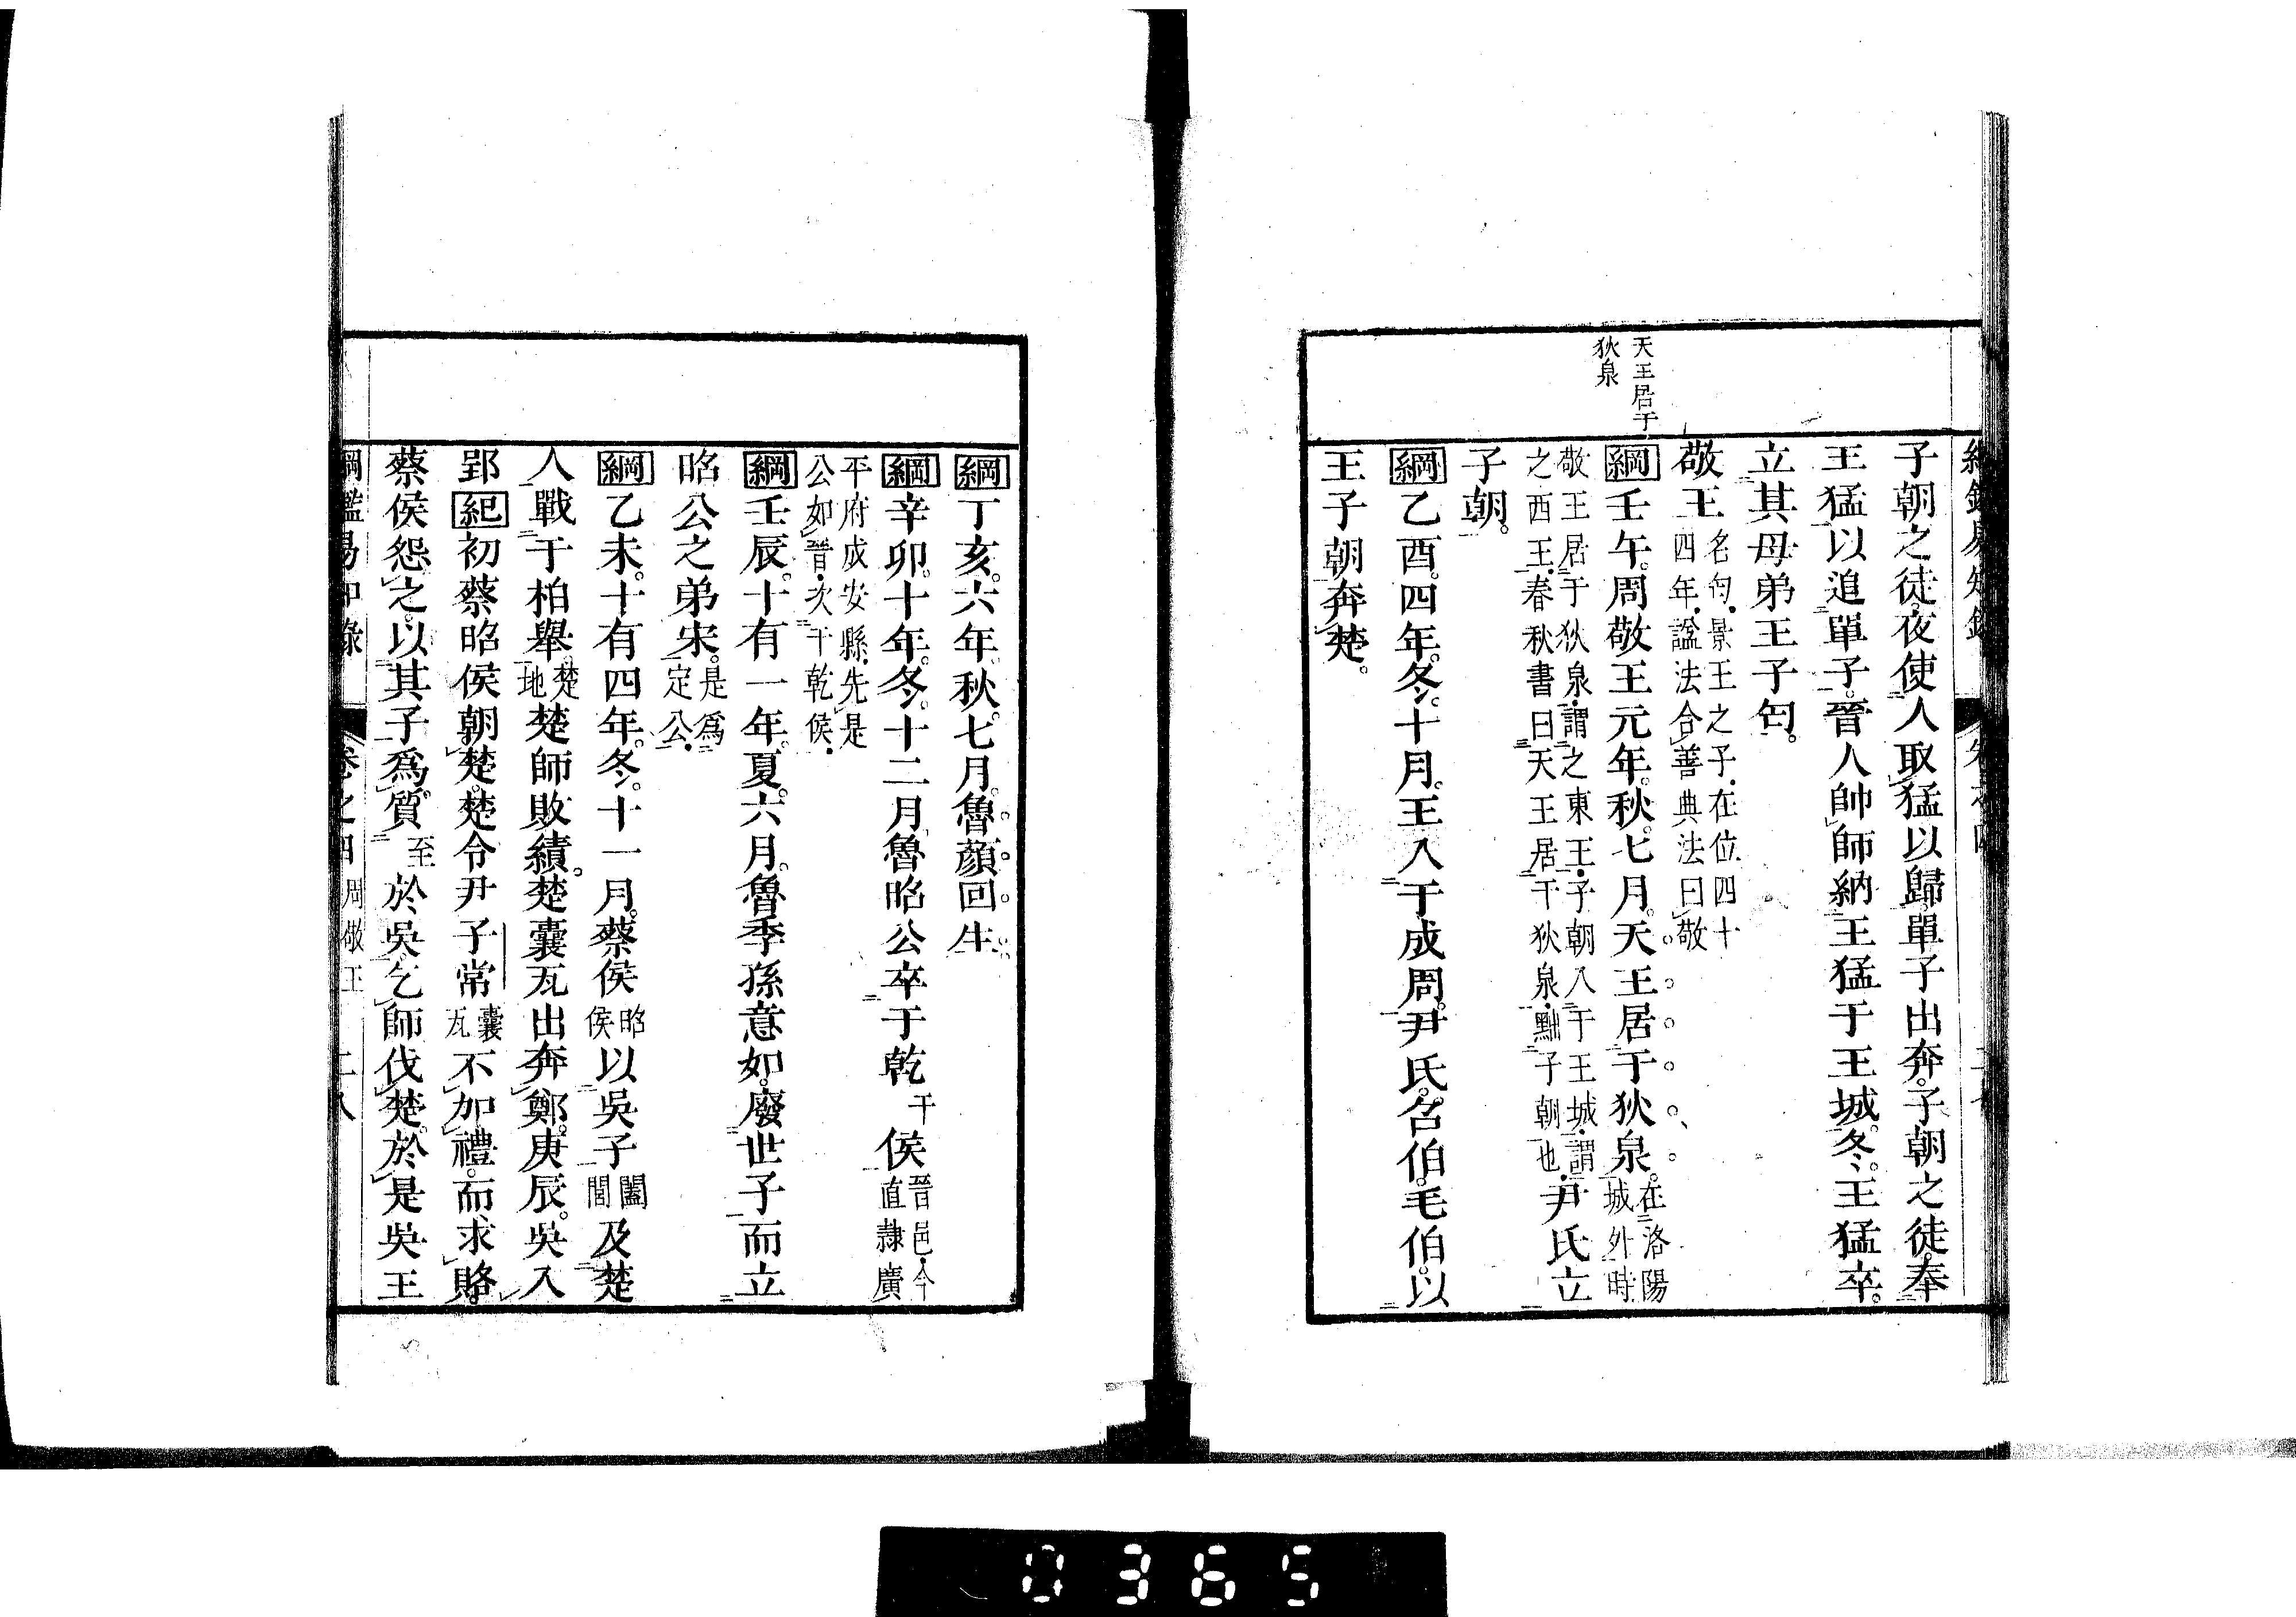 天王居于
狄泉
子朝之徒。夜使人取猛以歸。單子出奔。子朝之徒。奉
王猛以追單子。晉人帥師納王猛于王城。冬。王猛卒。
立其母弟王子匄。
敬王名匄。景王之子。在位四十四年。諡法合善典法曰敬
綱壬午。周敬王元年。秋。七月。天王居于狄泉。在洛陽城外時
敬王居于狄泉。謂之東王。子朝入于王城。謂之西王。春秋書曰天王居于狄泉。黜子朝也。尹氏立
子朝。
綱乙酉。四年。冬。十月。王入于成周。尹氏。召伯。毛伯。以
王子朝奔楚。
綱丁亥。六年。秋。七月。魯顏回生。
綱辛卯。十年。冬。十二月。魯昭公卒于乾干侯晉邑。今直隷廣
平府成安縣。先是公如晉。次于乾侯。
綱壬辰。十有一年。夏。六月。魯季孫意如。廢世子而立
昭公之弟宋。是爲定公。
綱乙未。十有四年。冬。十一月。蔡侯昭侯以吳子闔閭及楚
人戰于柏舉。楚地楚師敗績。楚囊瓦出奔鄭。庚辰。吳入
郢紀初蔡昭侯朝楚。楚令尹子常囊瓦不加禮。而求賂。
蔡侯怨之。以其子爲質至於吳。乞師伐楚。於是吳王
綱鑑易知錄 卷之四 周敬王 十八
0365